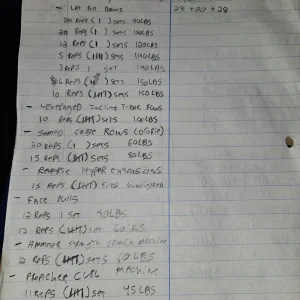 - Lat Pull Downs
28 + 20 + 28
20 Reps ( 1 ) sets 90LBS
20 Reps ( 1 ) sets 100LBS
12 Reps ( 1 ) sets 120LBS
5 Reps ( ) sets 140LBS
Reps 1 set 140LBS
Reps ( ) sets 150LBS
10 Reps ( ) sets 150LBS
- Incline T-BAR Rows
10 Reps ( ) sets 100LBS
- Seated Cable Rows
20 Reps ( 1 ) sets 60LBS
15 Reps ( ) sets 80LBS
- Reverse Hyper Extensions
15 Reps ( ) sets
- Face Pulls
12 Reps 1 set 40LBS
12 Reps ( ) set 60LBS
- Hammer Strength Machine
12 Reps ( ) sets 50LBS
- Preacher Curl Machine
11 Reps ( ) set 45LBS